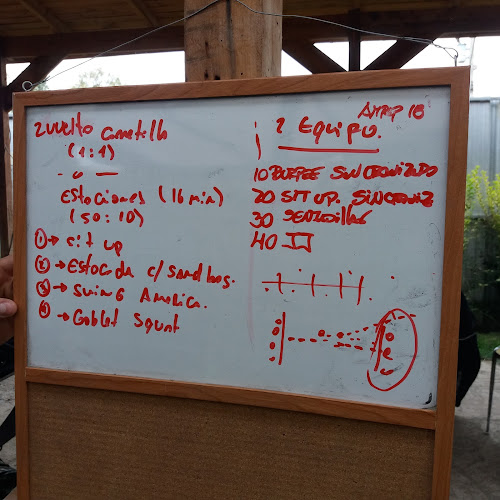 2 vuelto camotilla
(1:1)
Estaciones (16 min)
(50:10)
① → sit up
② → Estocada c/ sandbag.
③ → swing America.
④ → Goblet Squat
Amrap 18
2 Equipo.
10 BURPEE SINCRONIZADO
20 SIT UP. SINCRONIZ
30
40